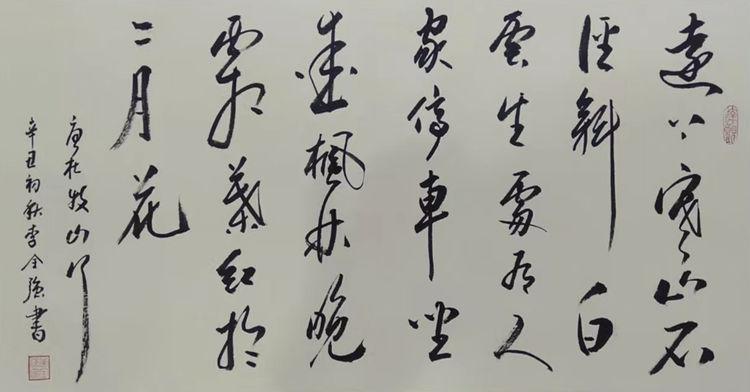 遠上寒山石
径斜白
雲生處有人
家停車坐
愛楓林晚
霜葉紅於
二月花
唐杜牧山行
辛丑初秋李全強書